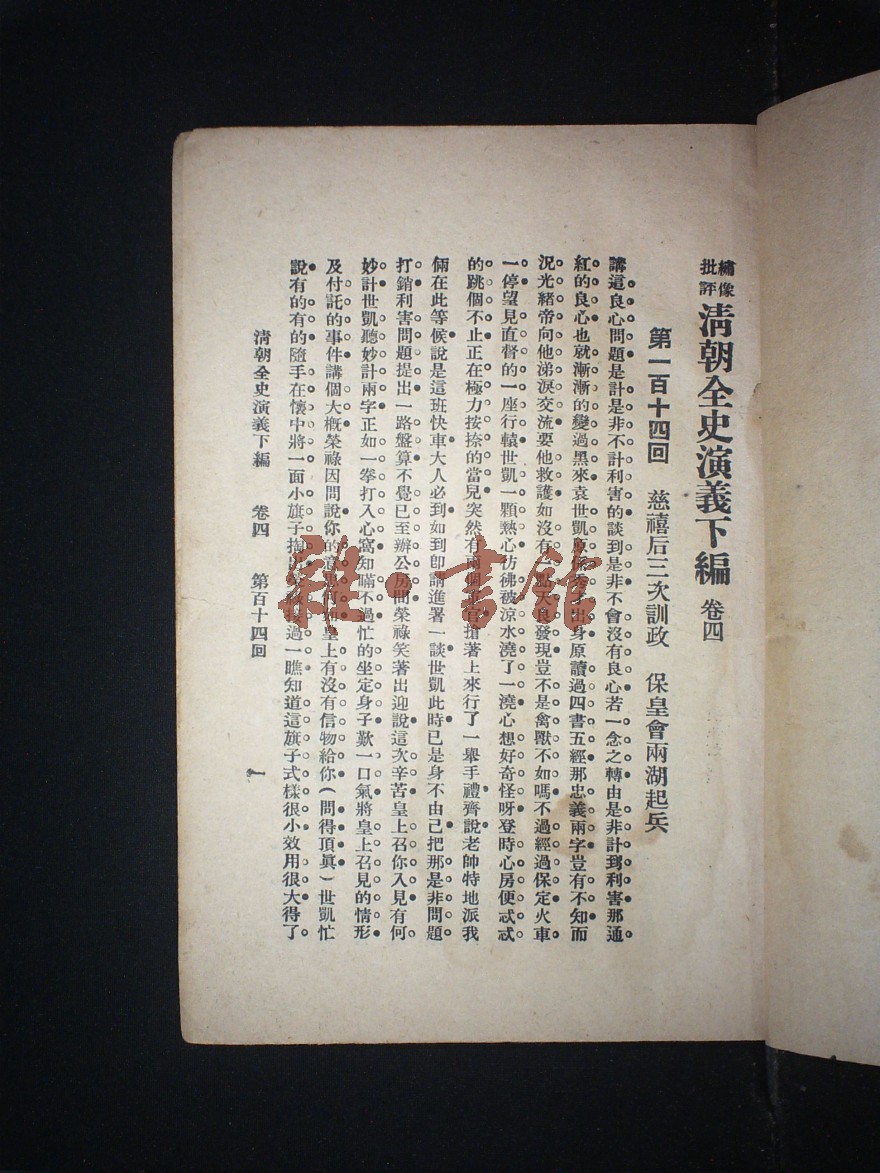 繡像批評 清朝全史演義下編 卷四
第一百十四回 慈禧后三次訓政 保皇會兩湖起兵
講這良心問題是計是非不計利害的談到是非不會沒有良心若一念之轉由是非計到利害那通
紅的良心也就漸漸的變過黑來袁世凱原係秀才出身原讀過四書五經那忠義兩字豈有不知而
況光緒帝向他涕淚交流要他救護如沒有一點天良發現豈不是禽獸不如嗎不過經過保定火車
一停望見直督的一座行轅世凱一顆熱心彷彿被涼水澆了一澆心想好奇怪呀登時心房便忒忒
的跳個不止正在極力按捺的當兒突然有兩個官搶著上來行了一舉手禮齊說老帥特地派我
倆在此等候說是這班快車大人必到如到卽請進署一談世凱此時已是身不由己把那是非問題
打銷利害問題提出一路盤算不覺已至辦公房間榮祿笑著出迎說這次辛苦皇上召你入見有何
妙計世凱聽妙計兩字正如一拳打入心窩知瞞不過忙的坐定身子歎一口氣將皇上召見的情形
及付託的事件講個大概榮祿因問說你的意思何如皇上有沒有信物給你(問得頂眞)世凱忙
說有的有的隨手在懷中將一面小旗子掏出榮祿接過一瞧知道這旗子式樣很小效用很大得了
清朝全史演義下編 卷四 第百十四回 一
雜·書館